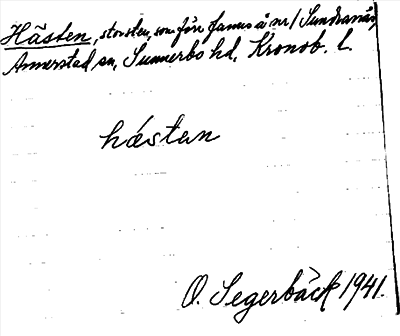 Hästen, storsten, som förr fanns å nr 1 Sundranäs,
Annerstad sn, Sunnerbo hd, Kronob. l.
hástan
O. Segerbäck 1941.